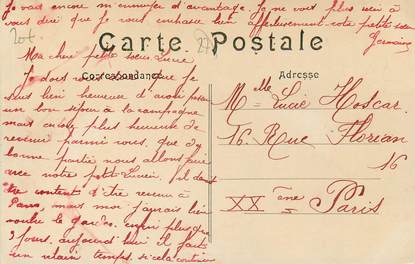 je vais encore m'ennuyer d'avantage. Je ne vous plus rien à
vous dire que je vous embrasse bien affectueusement votre petite sœur
Germaine
206
27
Carte Postale
Correspondance
Adresse
Ma chère petite sœur Lucie
Je dois vous dire que je
suis bien heureuse d'avoir passé
un bon séjour à la campagne
mais encore plus heureuse de
revenir parmi vous, que d'y
bonne partie nous allons faire
avec notre petit Lucien, il doit
être content d'être revenu à
Paris, mais moi j'aurais bien
voulu le garder, enfin plus que
3 jours, aujourd'hui il fait
un vilain temps, si cela continue
Melle Lucie Hodcar
16 Rue Florian
16
XX ème Paris